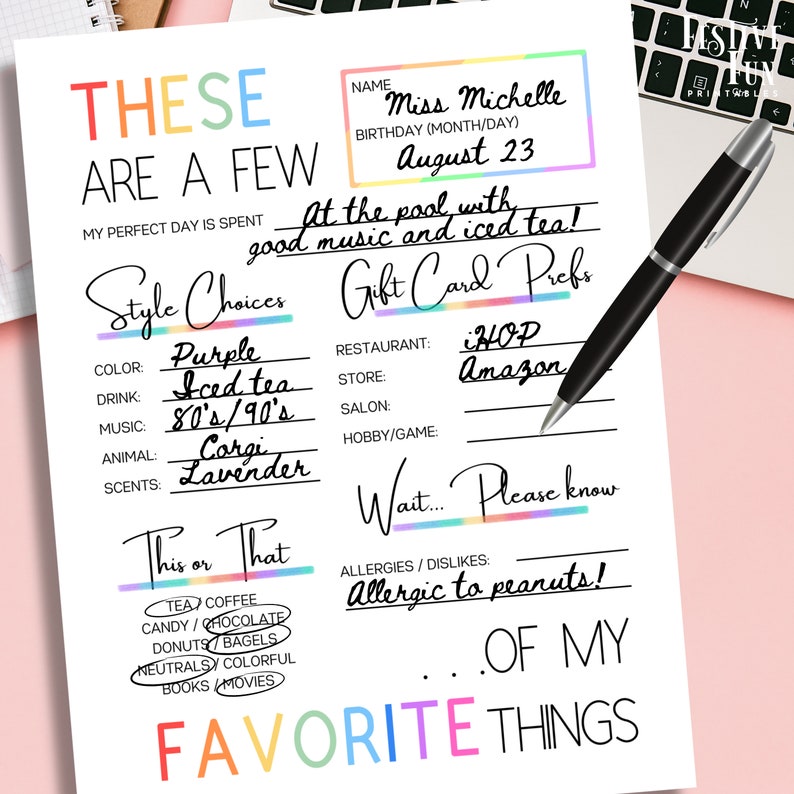 FESTIVE
FUN
PRINTABLES
THESE
ARE A FEW
NAME Miss Michelle
BIRTHDAY (MONTH/DAY)
August 23
MY PERFECT DAY IS SPENT At the pool with
good music and iced tea!
Style Choices
COLOR: Purple
DRINK: Iced tea
MUSIC: 80's/90's
ANIMAL: Corgi
SCENTS: Lavender
Gift Card Prefs
RESTAURANT: iHOP
STORE: Amazon
SALON:
HOBBY/GAME:
This or That
TEA / COFFEE
CANDY / CHOCOLATE
DONUTS / BAGELS
NEUTRALS / COLORFUL
BOOKS / MOVIES
Wait... Please know
ALLERGIES / DISLIKES:
Allergic to peanuts!
...OF MY
FAVORITE THINGS